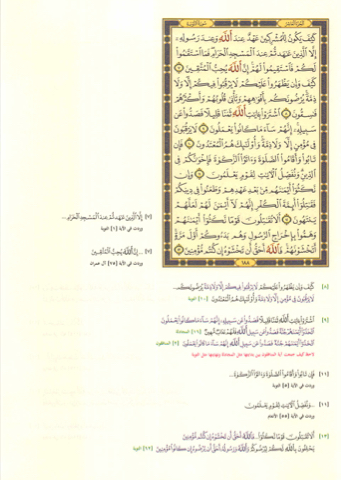 كَيْفَ يَكُونُ لِلْمُشْرِكِينَ عَهْدٌ عِندَ اللَّهِ وَعِندَ رَسُولِهِۦٓ
إِلَّا الَّذِينَ عَٰهَدتُّمْ عِندَ الْمَسْجِدِ الْحَرَامِ فَمَا اسْتَقَٰمُوا
لَكُمْ فَاسْتَقِيمُوا لَهُمْ إِنَّ اللَّهَ يُحِبُّ الْمُتَّقِينَ ٧
كَيْفَ وَإِن يَظْهَرُوا عَلَيْكُمْ لَا يَرْقُبُوا فِيكُمْ إِلًّا وَلَا
ذِمَّةً يُرْضُونَكُم بِأَفْوَٰهِهِمْ وَتَأْبَىٰ قُلُوبُهُمْ وَأَكْثَرُهُمْ
فَٰسِقُونَ ٨ اشْتَرَوْا بِـَٔايَٰتِ اللَّهِ ثَمَنًا قَلِيلًا فَصَدُّوا عَن
سَبِيلِهِۦٓ إِنَّهُمْ سَآءَ مَا كَانُوا يَعْمَلُونَ ٩ لَا يَرْقُبُونَ
فِى مُؤْمِنٍ إِلًّا وَلَا ذِمَّةً وَأُولَٰٓئِكَ هُمُ الْمُعْتَدُونَ ١٠ فَإِن
تَابُوا وَأَقَامُوا الصَّلَوٰةَ وَءَاتَوُا الزَّكَوٰةَ فَإِخْوَٰنُكُمْ فِى
الدِّينِ وَنُفَصِّلُ الْـَٔايَٰتِ لِقَوْمٍ يَعْلَمُونَ ١١ وَإِن
نَّكَثُوٓا أَيْمَٰنَهُم مِّن بَعْدِ عَهْدِهِمْ وَطَعَنُوا فِى دِينِكُمْ
فَقَٰتِلُوٓا أَئِمَّةَ الْكُفْرِ إِنَّهُمْ لَآ أَيْمَٰنَ لَهُمْ لَعَلَّهُمْ
يَنتَهُونَ ١٢ أَلَا تُقَٰتِلُونَ قَوْمًا نَّكَثُوٓا أَيْمَٰنَهُمْ
وَهَمُّوا بِإِخْرَاجِ الرَّسُولِ وَهُم بَدَءُوكُمْ أَوَّلَ مَرَّةٍ
أَتَخْشَوْنَهُمْ فَاللَّهُ أَحَقُّ أَن تَخْشَوْهُ إِن كُنتُم مُّؤْمِنِينَ ١٣
١٨٨
(٧) إِلَّا الَّذِينَ عَٰهَدتُّمْ عِندَ الْمَسْجِدِ الْحَرَامِ...
وردت في الآية [٤] التوبة
(٧) ...إِنَّ اللَّهَ يُحِبُّ الْمُتَّقِينَ
وردت في الآية [٧٦] آل عمران
(٨) كَيْفَ وَإِن يَظْهَرُوا عَلَيْكُمْ لَا يَرْقُبُوا فِيكُمْ إِلًّا وَلَا ذِمَّةً يُرْضُونَكُم...
لَا يَرْقُبُونَ فِى مُؤْمِنٍ إِلًّا وَلَا ذِمَّةً وَأُولَٰٓئِكَ هُمُ الْمُعْتَدُونَ [١٠] التوبة
(٩) اشْتَرَوْا بِـَٔايَٰتِ اللَّهِ ثَمَنًا قَلِيلًا فَصَدُّوا عَن سَبِيلِهِۦٓ إِنَّهُمْ سَآءَ مَا كَانُوا يَعْمَلُونَ
اتَّخَذُوٓا أَيْمَٰنَهُمْ جُنَّةً فَصَدُّوا عَن سَبِيلِ اللَّهِ فَلَهُمْ عَذَابٌ مُّهِينٌ [١٦] المجادلة
اتَّخَذُوٓا أَيْمَٰنَهُمْ جُنَّةً فَصَدُّوا عَن سَبِيلِ اللَّهِ إِنَّهُمْ سَآءَ مَا كَانُوا يَعْمَلُونَ [٢] المنافقون
(١١) فَإِن تَابُوا وَأَقَامُوا الصَّلَوٰةَ وَءَاتَوُا الزَّكَوٰةَ...
وردت في الآية [٥] التوبة
(١١) ...وَنُفَصِّلُ الْـَٔايَٰتِ لِقَوْمٍ يَعْلَمُونَ
(١٣) أَلَا تُقَٰتِلُونَ قَوْمًا نَّكَثُوٓا... فَاللَّهُ أَحَقُّ أَن تَخْشَوْهُ إِن كُنتُم مُّؤْمِنِينَ
يَحْلِفُونَ بِاللَّهِ لَكُمْ لِيُرْضُوكُمْ وَاللَّهُ وَرَسُولُهُۥٓ أَحَقُّ أَن يُرْضُوهُ إِن كَانُوا مُؤْمِنِينَ [٦٢] التوبة